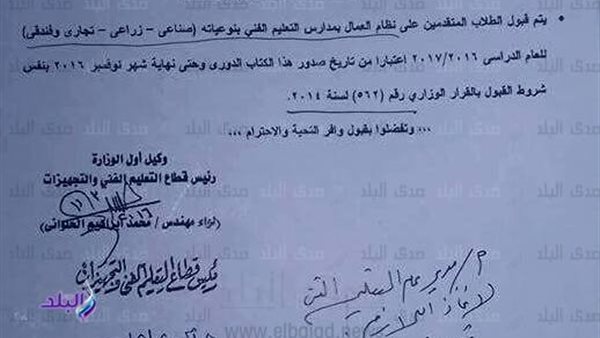 • يتم قبول الطلاب المتقدمين على نظام العمال بمدارس التعليم الفني بنوعياته (صناعى – زراعى – تجارى وفندقى)
للعام الدراسى ٢٠١٧/٢٠١٦ اعتبارا من تاريخ صدور هذا الكتاب الدورى وحتى نهاية شهر نوفمبر ٢٠١٦ بنفس
شروط القبول بالقرار الوزاري رقم (٥٦٢) لسنة ٢٠١٤.
... وتفضلوا بقبول وافر التحية والاحترام ...
وكيل أول الوزارة
رئيس قطاع التعليم الفني والتجهيزات
لواء مهندس / محمد ابراهيم الحلوانى
مدير عام التعليم الفني
صدى البلد
www.elbalad.net